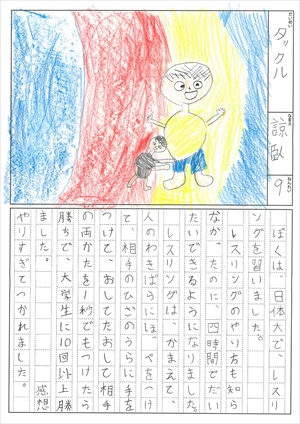 だいめい
タックル
なまえ
諒臥
ねんれい
9
ぼくは、日体大で、レスリ
ングを習いました。
レスリングのやり方も知ら
なかったのに、四時間でだい
たいできるようになりました。
レスリングは、かまえて、
人のわきばらにほっぺをつけ
て、相手のひざのうらに手を
つけて、おしてたおして相手
の両かたを1秒でもつけたら
勝ちで、大学生に10回以上勝
ちました。
感想
やりすぎてつかれました。